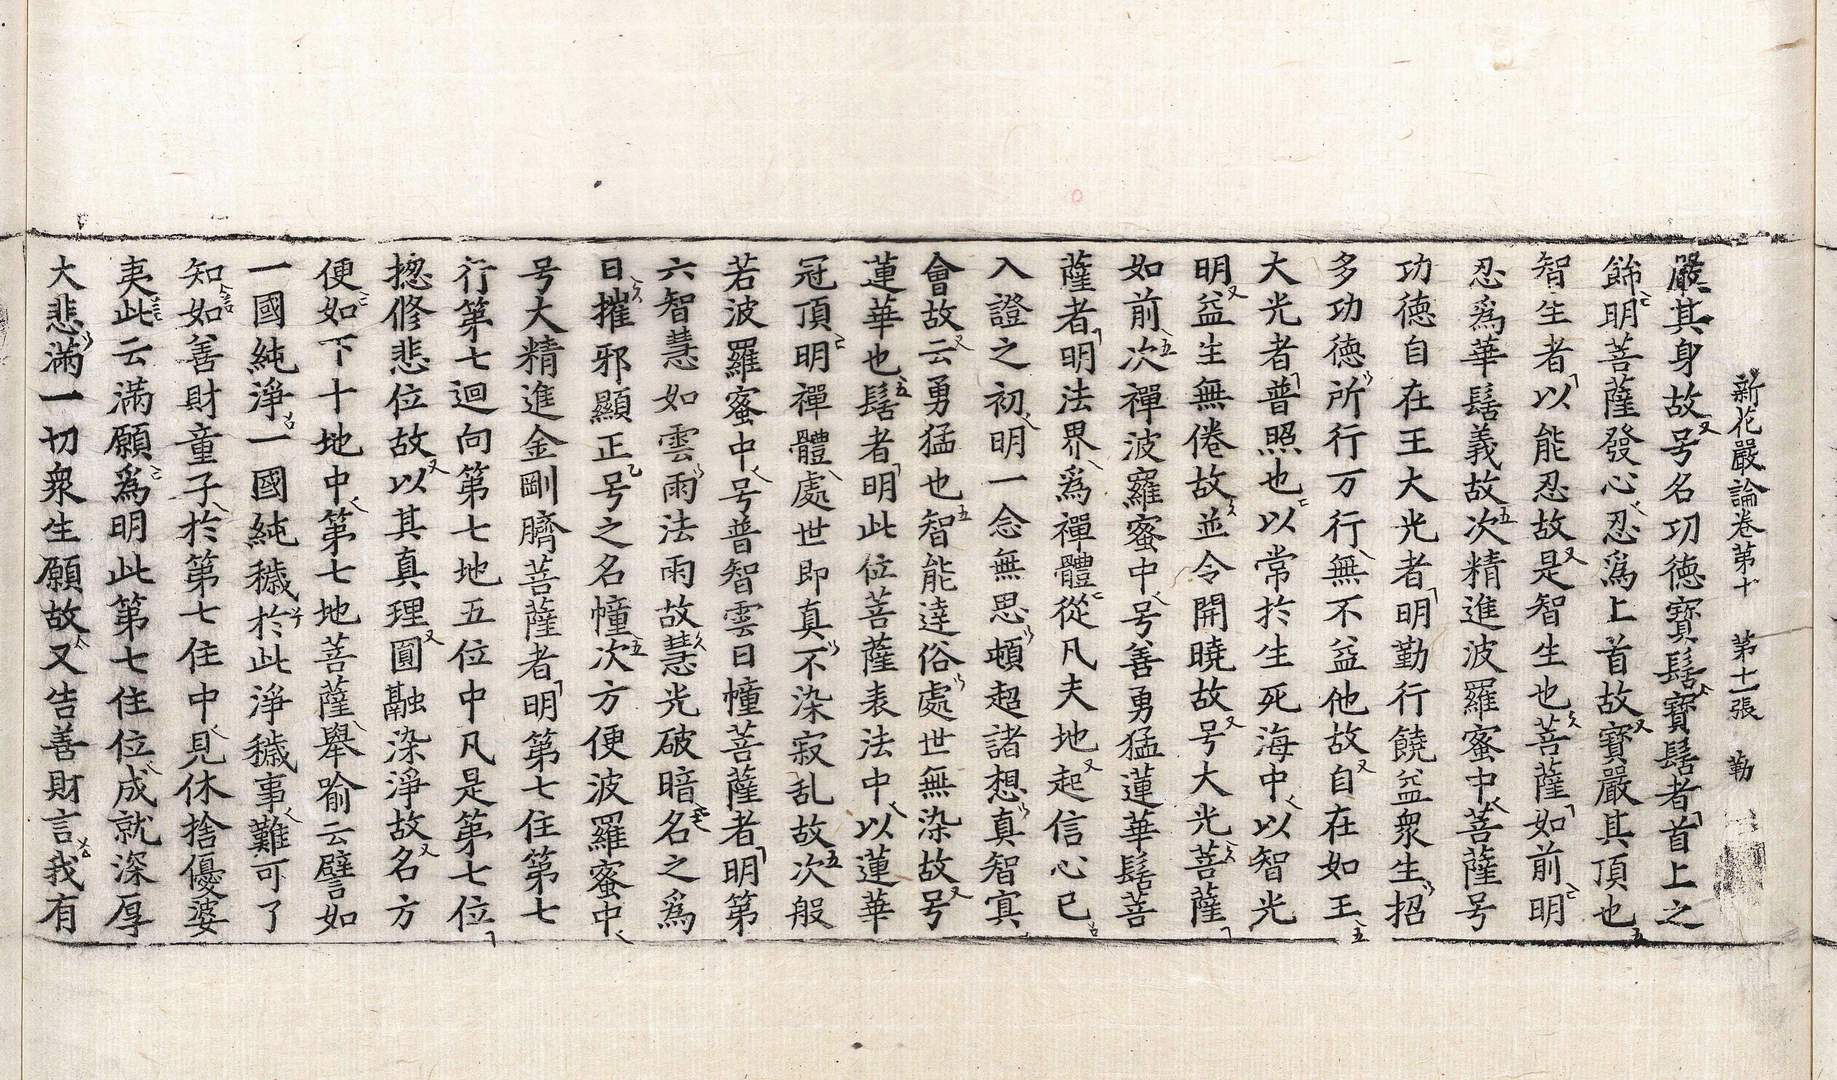 新花嚴論卷第十　第十一張　勒
嚴其身故号名功徳寳髻寳髻者首上之
餙明菩薩發心忍爲上首故寳嚴其頂也
智生者以能忍故是智生也菩薩如前明
忍爲華髻義故次精進波羅蜜中菩薩号
功徳自在王大光者明勤行饒益衆生招
多功徳所行万行無不益他故自在如王
大光者普照也以常扵生死海中以智光
明益生無倦故並令開曉故号大光菩薩
如前次禪波羅蜜中号善勇猛蓮華髻菩
薩者明法界爲禪體從凡夫地起信心已
入證之初明一念無思頓超諸想真智寘
會故云勇猛也智能逹俗處世無染故号
蓮華也髻者明此位菩薩表法中以蓮華
冠頂明禪體處世即真不染寂乱故次般
若波羅蜜中号普智雲日幢菩薩者明第
六智慧如雲雨法雨故慧光破暗名之爲
日摧邪顯正号之名幢次方便波羅蜜中
号大精進金剛臍菩薩者明第七住第七
行第七迴向第七地五位中凡是第七位
揔修悲位故以其真理圓融染淨故名方
便如下十地中第七地菩薩舉喻云譬如
一國純淨一國純穢扵此淨穢事難可了
知如善財童子扵第七住中見休捨優婆
夷此云滿願爲明此第七住位成就深厚
大悲滿一切衆生願故又告善財言我有